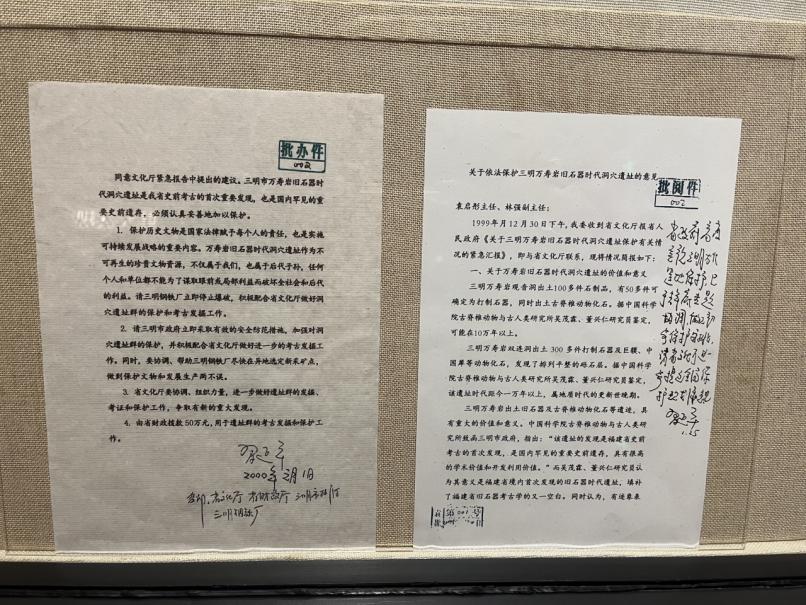 批办件
002
同意文化厅紧急报告中提出的建议。三明市万寿岩旧石器时
代洞穴遗址是我省史前考古的首次重要发现，也是国内罕见的重
要史前遗存，必须认真妥善地加以保护。
1. 保护历史文物是国家法律赋予每个人的责任，也是实施
可持续发展战略的重要内容。万寿岩旧石器时代洞穴遗址作为不
可再生的珍贵文物资源，不仅属于我们，也属于子孙后代，任何
个人和单位都不能为了谋取眼前或局部利益而破坏全社会和后代
的利益。请三明钢铁厂立即停止爆破，积极配合省文化厅做好洞
穴遗址群的保护和考古发掘工作。
2. 请三明市政府立即采取有效的安全防范措施，加强对洞
穴遗址群的保护，并积极配合省文化厅做好进一步的考古发掘工
作。同时，要协调、帮助三明钢铁厂尽快在异地选定新采矿点，
做到保护文物和发展生产两不误。
3. 省文化厅要协调、组织力量，进一步做好遗址群的发掘、
考证和保护工作，争取有新的重大发现。
4. 由省财政拨款50万元，用于遗址群的考古发掘和保护工
作。
习近平
2000年1月1日
三明钢铁厂
关于依法保护三明万寿岩旧石器时代洞穴遗址的意见
批阅件
002
袁启彤主任、林强副主任：
1999年月12月30日下午，我委收到省文化厅报省人
民政府《关于三明万寿岩旧石器时代洞穴遗址保护有关情
况的紧急汇报》，即与省文化厅联系，现将情况简报如下：
一、关于万寿岩旧石器时代洞穴遗址的价值和意义
三明万寿岩观音洞出土100多件石制品，有50多件可
确定为打制石器，同时出土古脊椎动物化石。据中国科学
院古脊椎动物与古人类研究所吴茂霖、董兴仁研究员鉴定，
可能在10万年以上。
三明万寿岩双连洞出土300多件打制石器及巨貘、中
国犀等动物化石，发现了排列平整的砾石层。据中国科学
院古脊椎动物与古人类研究所吴茂霖、董兴仁研究员鉴定，
该遗址时代距今一万年以上，属地质时代的更新世晚期。
三明万寿岩出土旧石器及古脊椎动物化石等遗迹，具
有重大的价值和意义。中国科学院古脊椎动物与古人类研
究所致函三明市政府，指出：“该遗址的发现是福建省史前
考古的首次发现，是国内罕见的重要史前遗存，具有很高
的学术价值和开发利用价值。”而吴茂霖、董兴仁研究员认
为其意义是福建省境内首次发现的旧石器时代遗址，填补
了福建省旧石器考古学的又一空白。同时认为，有迹象表
习近平
1.25